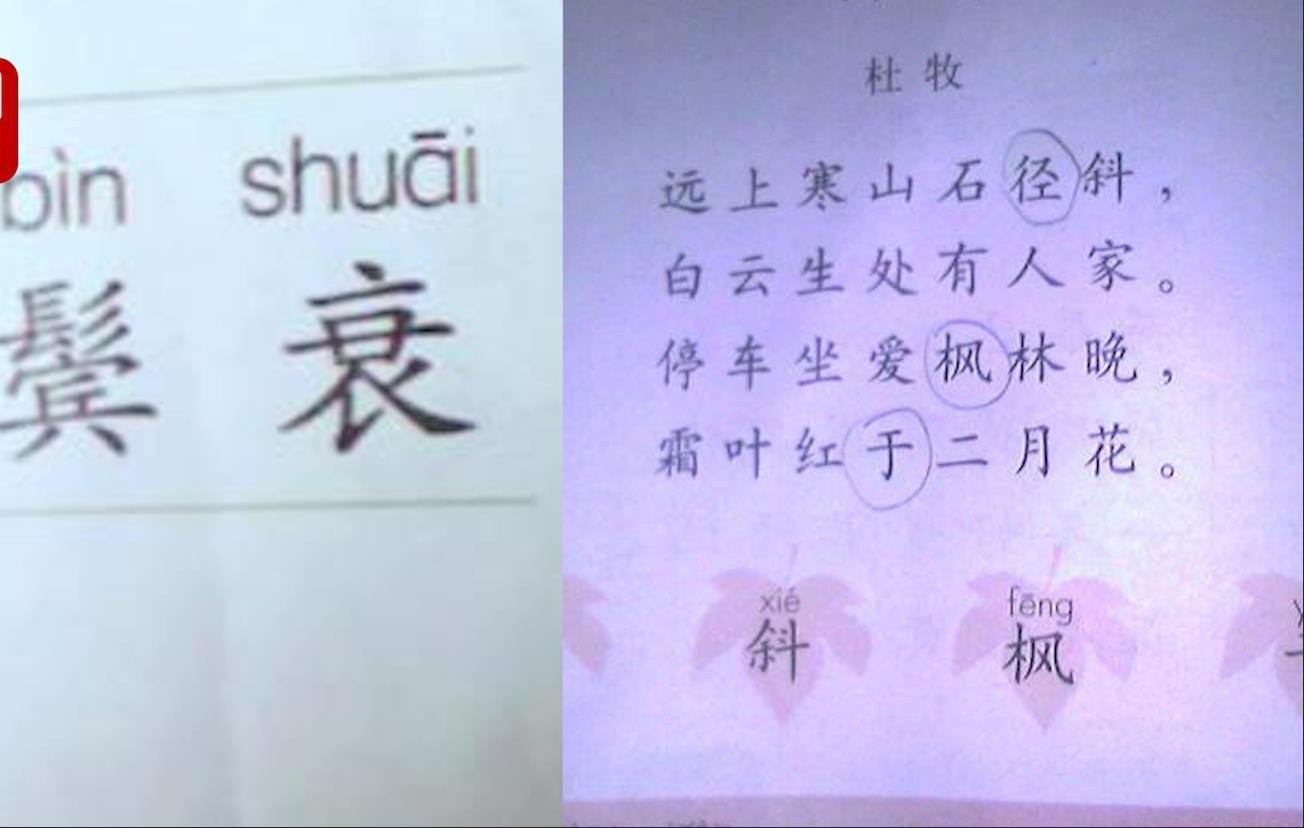 bìn shuāi
鬓 衰
杜牧
远上寒山石径斜，
白云生处有人家。
停车坐爱枫林晚，
霜叶红于二月花。
xié fēng
斜 枫